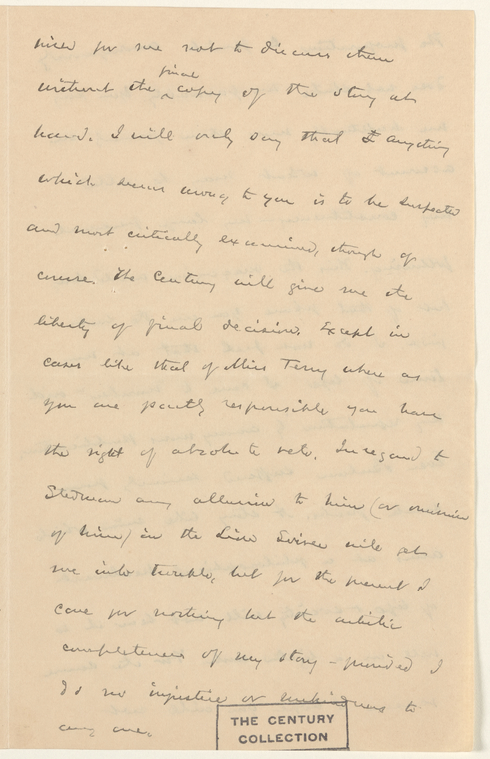 wise for me not to discuss them
without the final copy of the story at
hand. I will only say that I anything
which seems wrong to you is to be suspected
and most critically examined, though of
course The Century will give me the
liberty of final decision. Except in
cases like that of Miss Terry where as
you are partly responsible you have
the right of absolute veto. In regard to
Stedman any allusion to him (or omission
of him) in the Soirée will get
me into trouble, but for the present I
care for nothing but the artistic
completeness of my story – provided I
do no injustice or unkindness to
any one.
THE CENTURY
COLLECTION